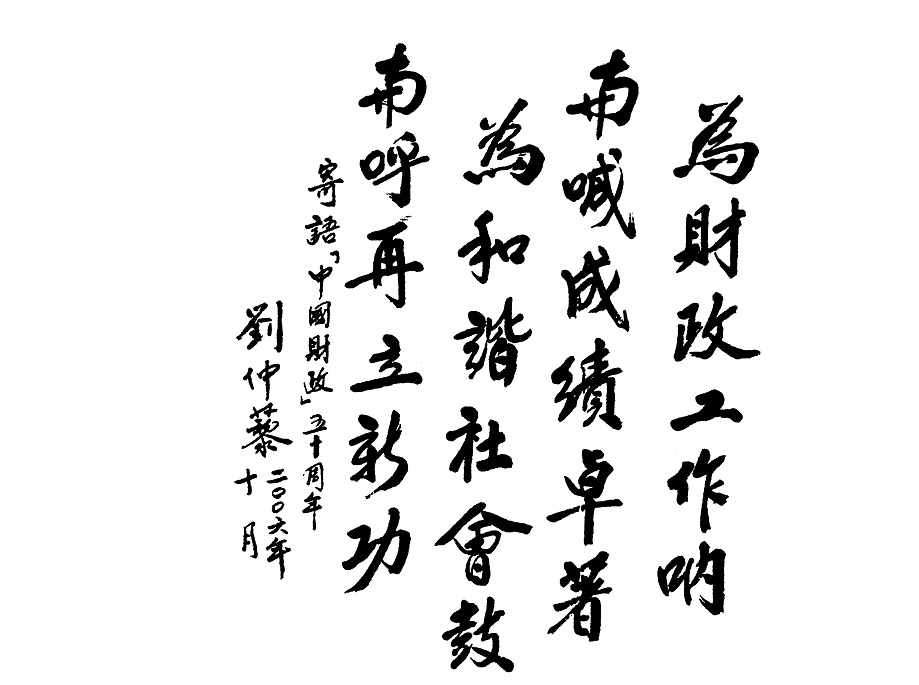 為財政工作呐
而喊成績卓著
為和諧社會鼓
而呼再立新功
寄語「中國財政」五十周年
劉仲藜
二〇〇六年
十月